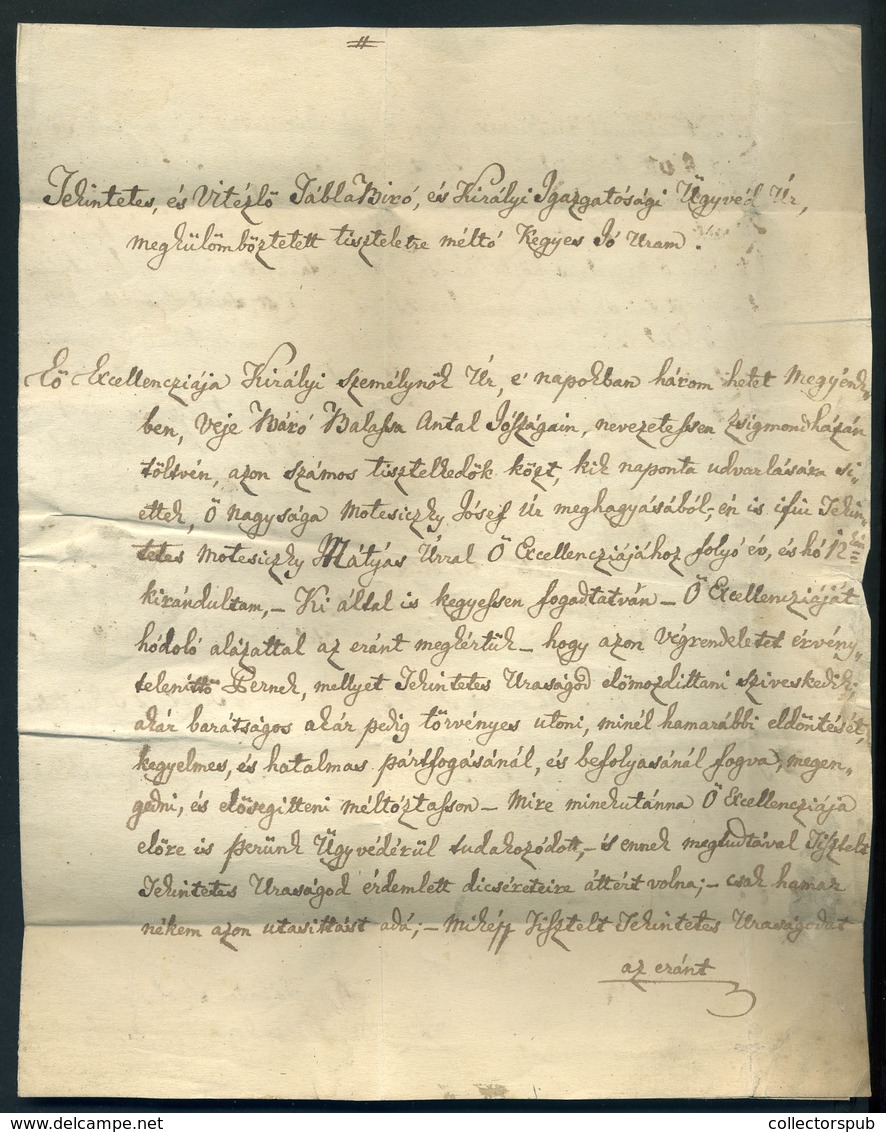 Tekintetes, és Vitézlő TáblaBiró, és Királyi Igazgatósági Ügyvéd Úr,
megkülömböztetett tiszteletre méltó Kegyes Jó Uram.
Eő Excellencziája Királyi Személynök Úr, e' napokban három hetet Megyénk„
ben, Veje Báró Balassa Antal Jószágain, nevezetessen Zsigmondházán
töltvén, azon számos tisztelkedők közt, kik naponta udvarlására si„
ettek, Ő Nagysága Motesiczky Jósef Úr meghagyásából, én is ifiu Tekin„
tetes Motesiczky Mátyás Úrral Ő Excellencziájához folyó év, és hó 12kén
kirándultam, – Ki által is kegyessen fogadtatván – Ő Excellencziáját
hódoló alázattal az eránt megkértük – hogy azon Végrendeletet érvény„
telenittő Pernek, mellyet Tekintetes Uraságod elömozdittani sziveskedik,
akár barátságos akár pedig törvényes utoni, minél hamarábbi eldöntését,
kegyelmes, és hatalmas pártfogásánál, és befolyásánál fogva, megen„
gedni, és elősegitteni méltóztasson – Mire minekutánna Ő Excellencziája
előre is perünk Ügyvédérül tudakozódott, – és ennek megtudtával Tisztelt
Tekintetes Uraságod érdemlett dicséreteire áttért volna; – csak hamar
nékem azon utasittást adá; – Miképp Tisztelt Tekintetes Uraságodat
az eránt
collectorspub